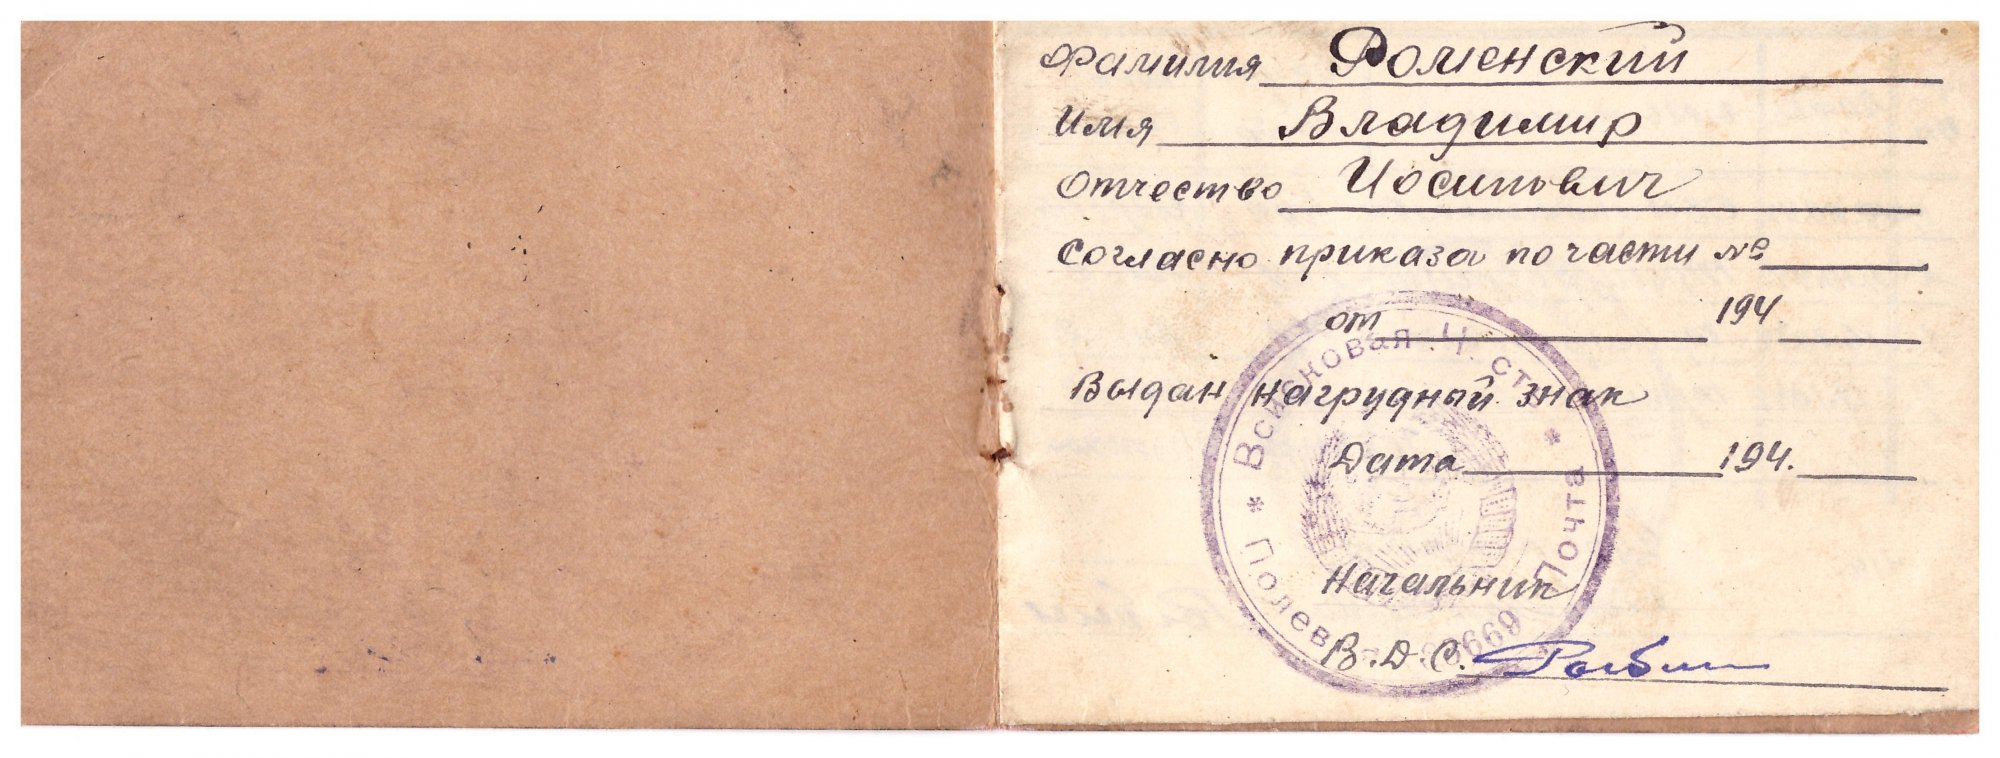 Фамилия Роменский
Имя Владимир
Отчество Иосипович
Согласно приказа по части №
от 194
Выдан нагрудный знак
Дата 194.
Начальник
В.Д.С.
* Войсковая Ч сть *
Полев Почта
669